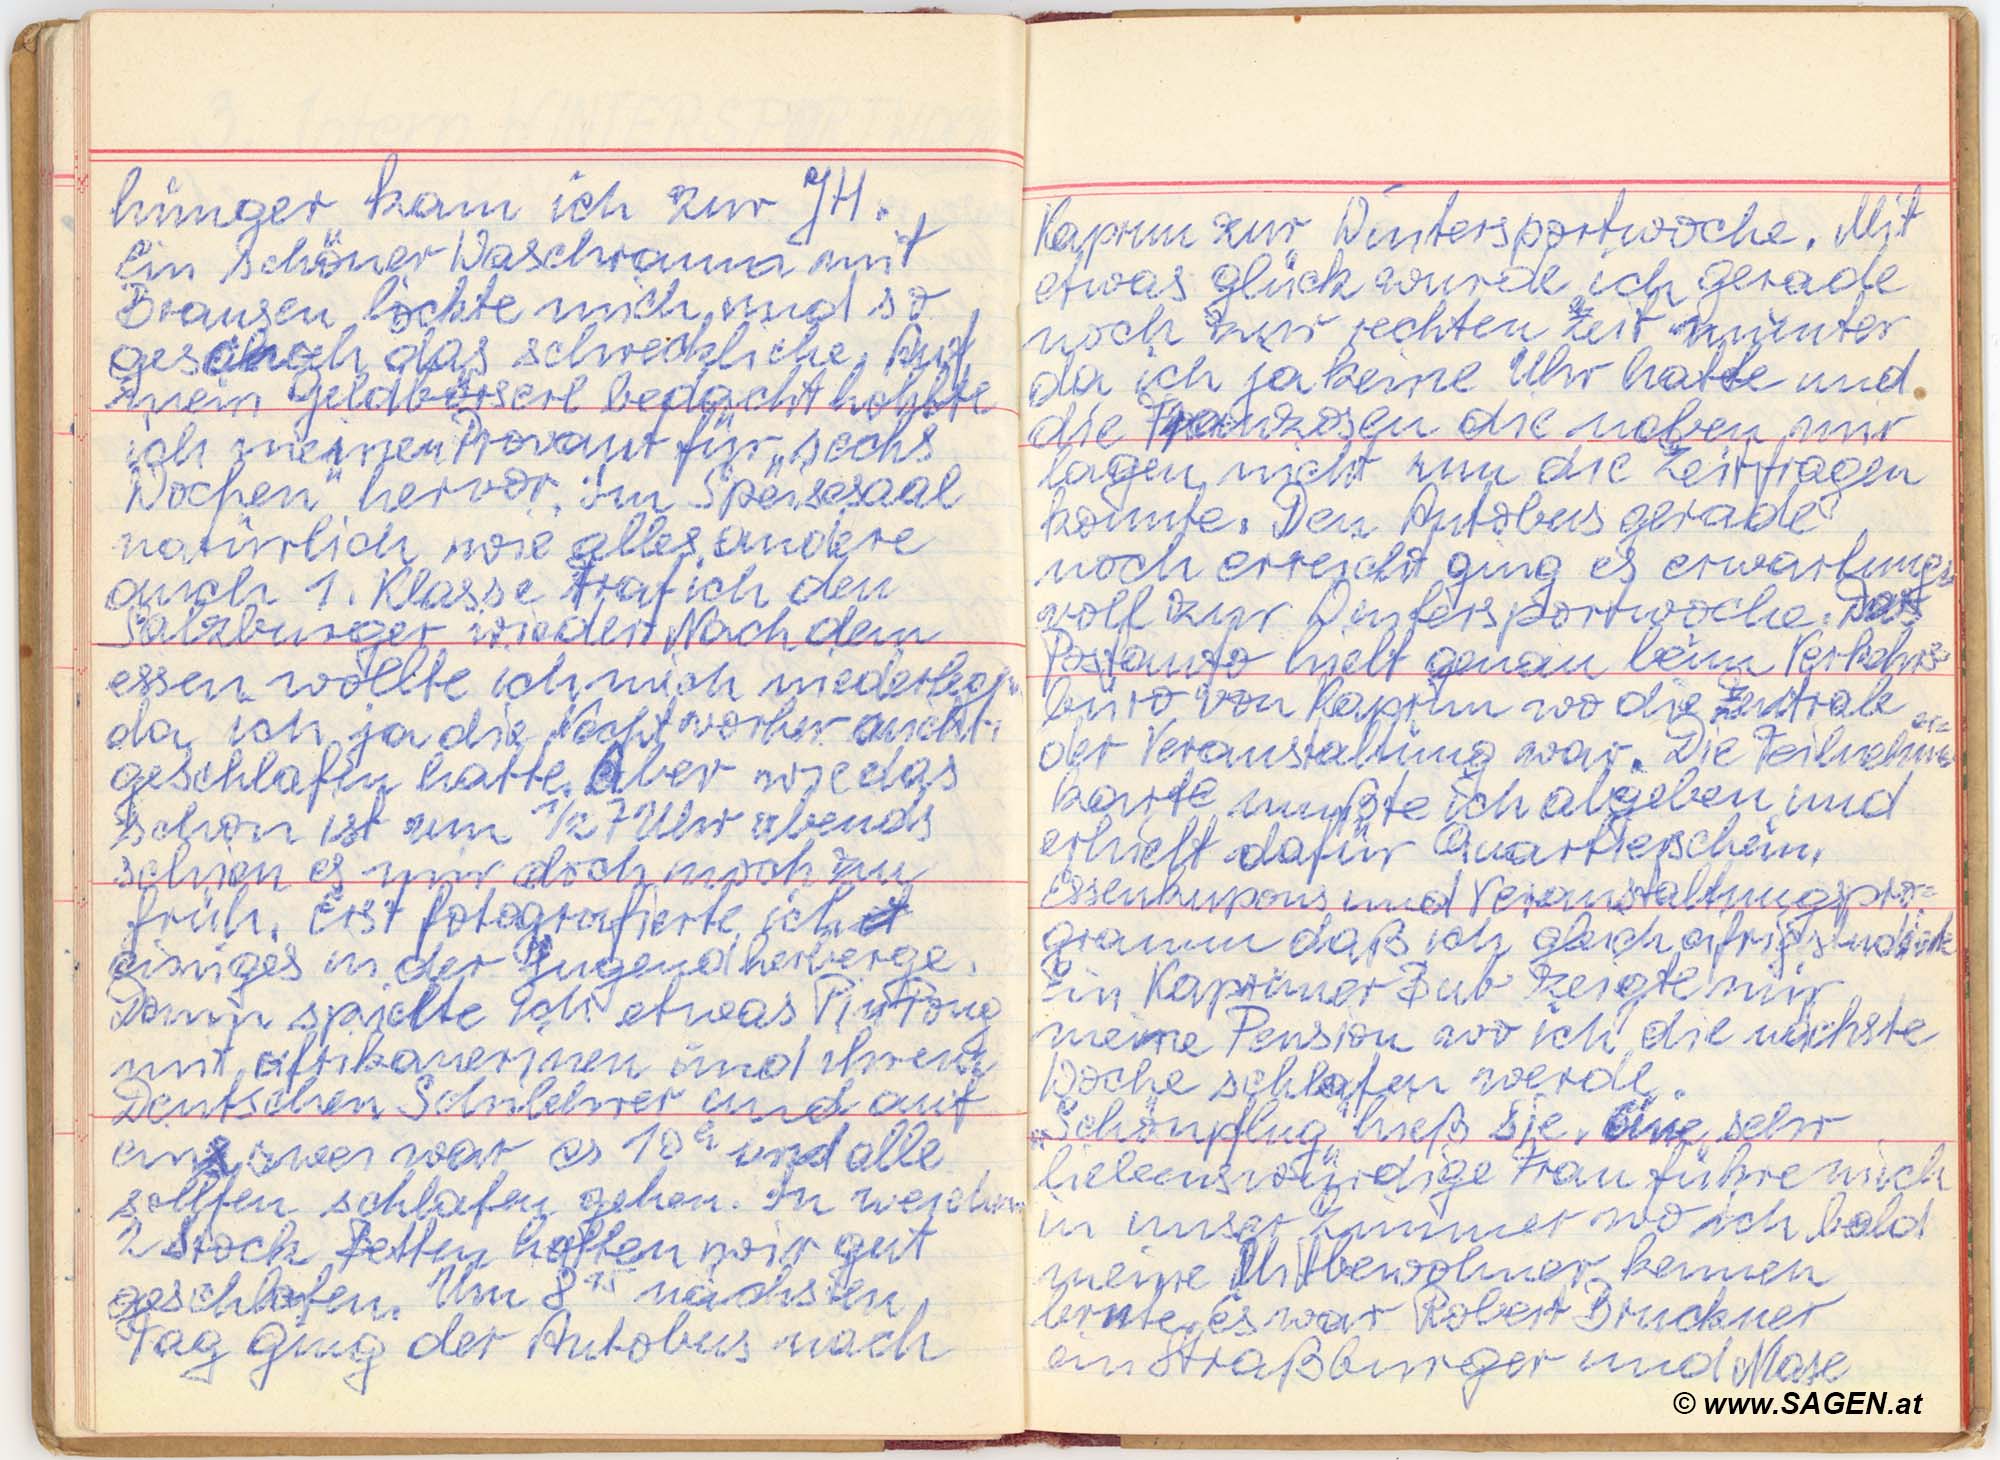 hunger kam ich zur JH.
Ein schöner Waschraum mit
Brausen lockte mich und so
geschah das schreckliche. Auf
mein Geldbörserl bedacht hohlte
ich meinen Provant für „sechs
Wochen" hervor. Im Speisesaal
natürlich wie alles andere
auch 1. Klasse traf ich den
Salzburger wieder. Nach dem
essen wollte ich mich niederlegen
da ich ja die Nacht vorher nicht
geschlafen hatte. Aber wie das
schon ist um 1/2 7 Uhr abends
schien es mir doch noch zu
früh. Erst fotografierte ich
einiges in der Jugendherberge.
Dann spielte ich etwas PinPong
mit afrikanerinen und ihrem
Deutschen Schullehrer und auf
eins zwei war es 10h und alle
sollten schlafen gehen. In weichen
2 Stock Betten hatten wir gut
geschlafen. Um 8 15 nächsten
Tag ging der Autobus nach
Kaprun zur Wintersportwoche. Mit
etwas glück wurde ich gerade
noch zur rechten Zeit munter
da ich ja keine Uhr hatte und
die Franzosen die neben mir
lagen nicht um die Zeit fragen
konnte. Den Autobus gerade
noch erreicht ging es erwartungs
voll zur Wintersportwoche. Das
Postauto hielt genau beim Verkehrs=
büro von Kaprun wo die Zentrale
der Veranstaltung war. Die Teilnehmer=
karte mußte ich abgeben und
erhielt dafür Quartierschein,
Essenkupons und Veranstaltungspro=
gramm daß ich gleich eifrig studierte
Ein Kapruner Bub zeigte mir
meine Pension wo ich die nächste
Woche schlafen werde.
„Schönpflug" hieß sie. Eine sehr
liebenswürdige Frau führe mich
in unser Zimmer wo ich bald
meine Mitbewohner kennen
lernte. Es war Robert Bruckner
ein Straßburger und Mase
© www.SAGEN.at